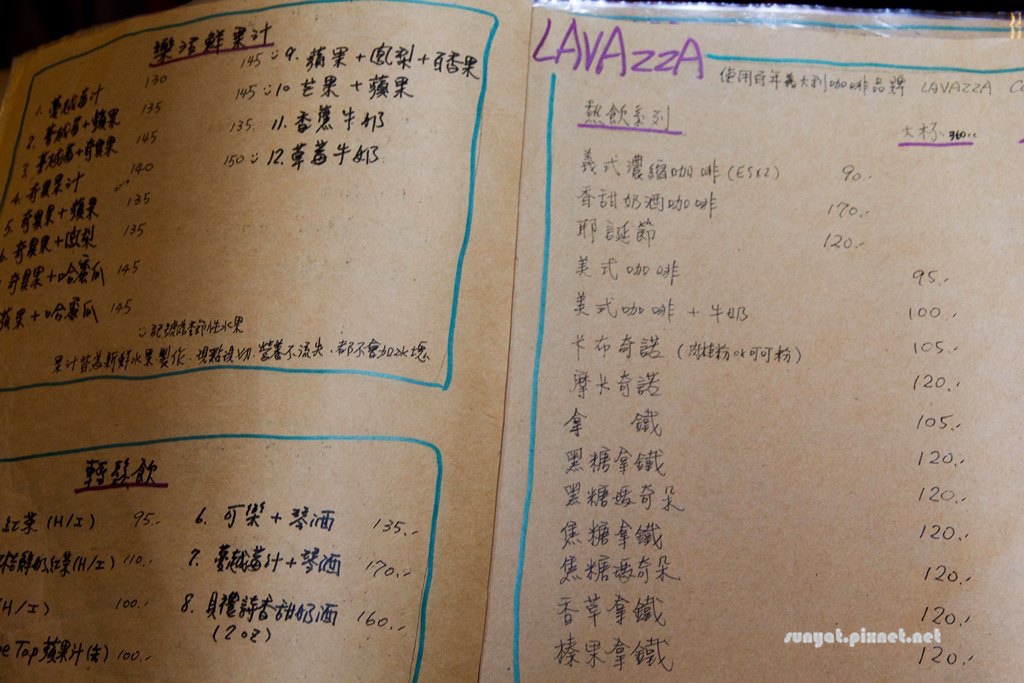 樂活鮮果汁
1. 蔓越莓汁 130
2. 蔓越莓+蘋果 135
3. 蔓越莓+奇異果 145
4. 奇異果汁 140
5. 奇異果+蘋果 135
6. 奇異果+鳳梨 135
奇異果+哈蜜瓜 145
蘋果+哈蜜瓜 145
145 9. 蘋果+鳳梨+百香果
145 10 芒果+蘋果
135. 11. 香蕉牛奶
150 12. 草莓牛奶
記號為季節性水果
果汁皆為新鮮水果製作.現點現切.營養不流失.都不會加冰塊
輕鬆飲
紅茶(H/I) 95.
奶紅茶(H/I) 110.
(H/I) 100.
Top 蘋果汁(冷) 100.
6. 可樂+琴酒 135.
7. 蔓越莓汁+琴酒 170.
8. 貝禮詩香甜奶酒 160.
(2oz)
LAVAZZA 使用百年義大利咖啡品牌 LAVAZZA
熱飲系列 大杯 360cc
義式濃縮咖啡(ESX2) 90.
香甜奶酒咖啡 170.
耶誕節 120.
美式咖啡 95.
美式咖啡+牛奶 100.
卡布奇諾(肉桂粉or可可粉) 105.
摩卡奇諾 120.
拿鐵 105.
黑糖拿鐵 120.
黑糖瑪奇朵 120.
焦糖拿鐵 120.
焦糖瑪奇朵 120.
香草拿鐵 120.
榛果拿鐵 120.
sunyat.pixnet.net